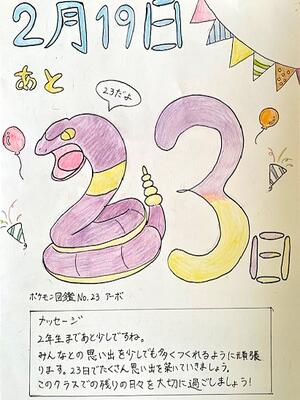 2月19日
あと
23だよ
23日
ポケモン図鑑No.23 アーボ
メッセージ
2年生まであと少しですね。
みんなとの思い出を少しでも多くつくれるように頑張
ります。23日でたくさん思い出を築いていきましょう。
このクラスでの残りの日々を大切に過ごしましょう!